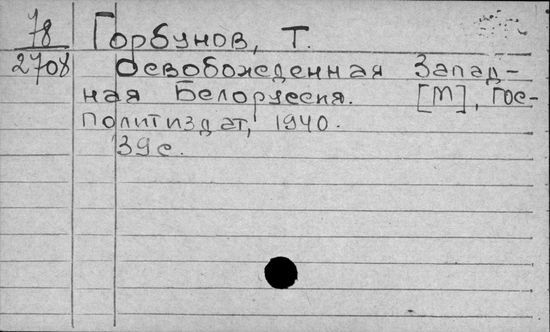 78 Горбунов, Т.
2708 Освобожденная Запад-
ная Белоруссия. [М], Гос-
политиздат, 1940.
39с.